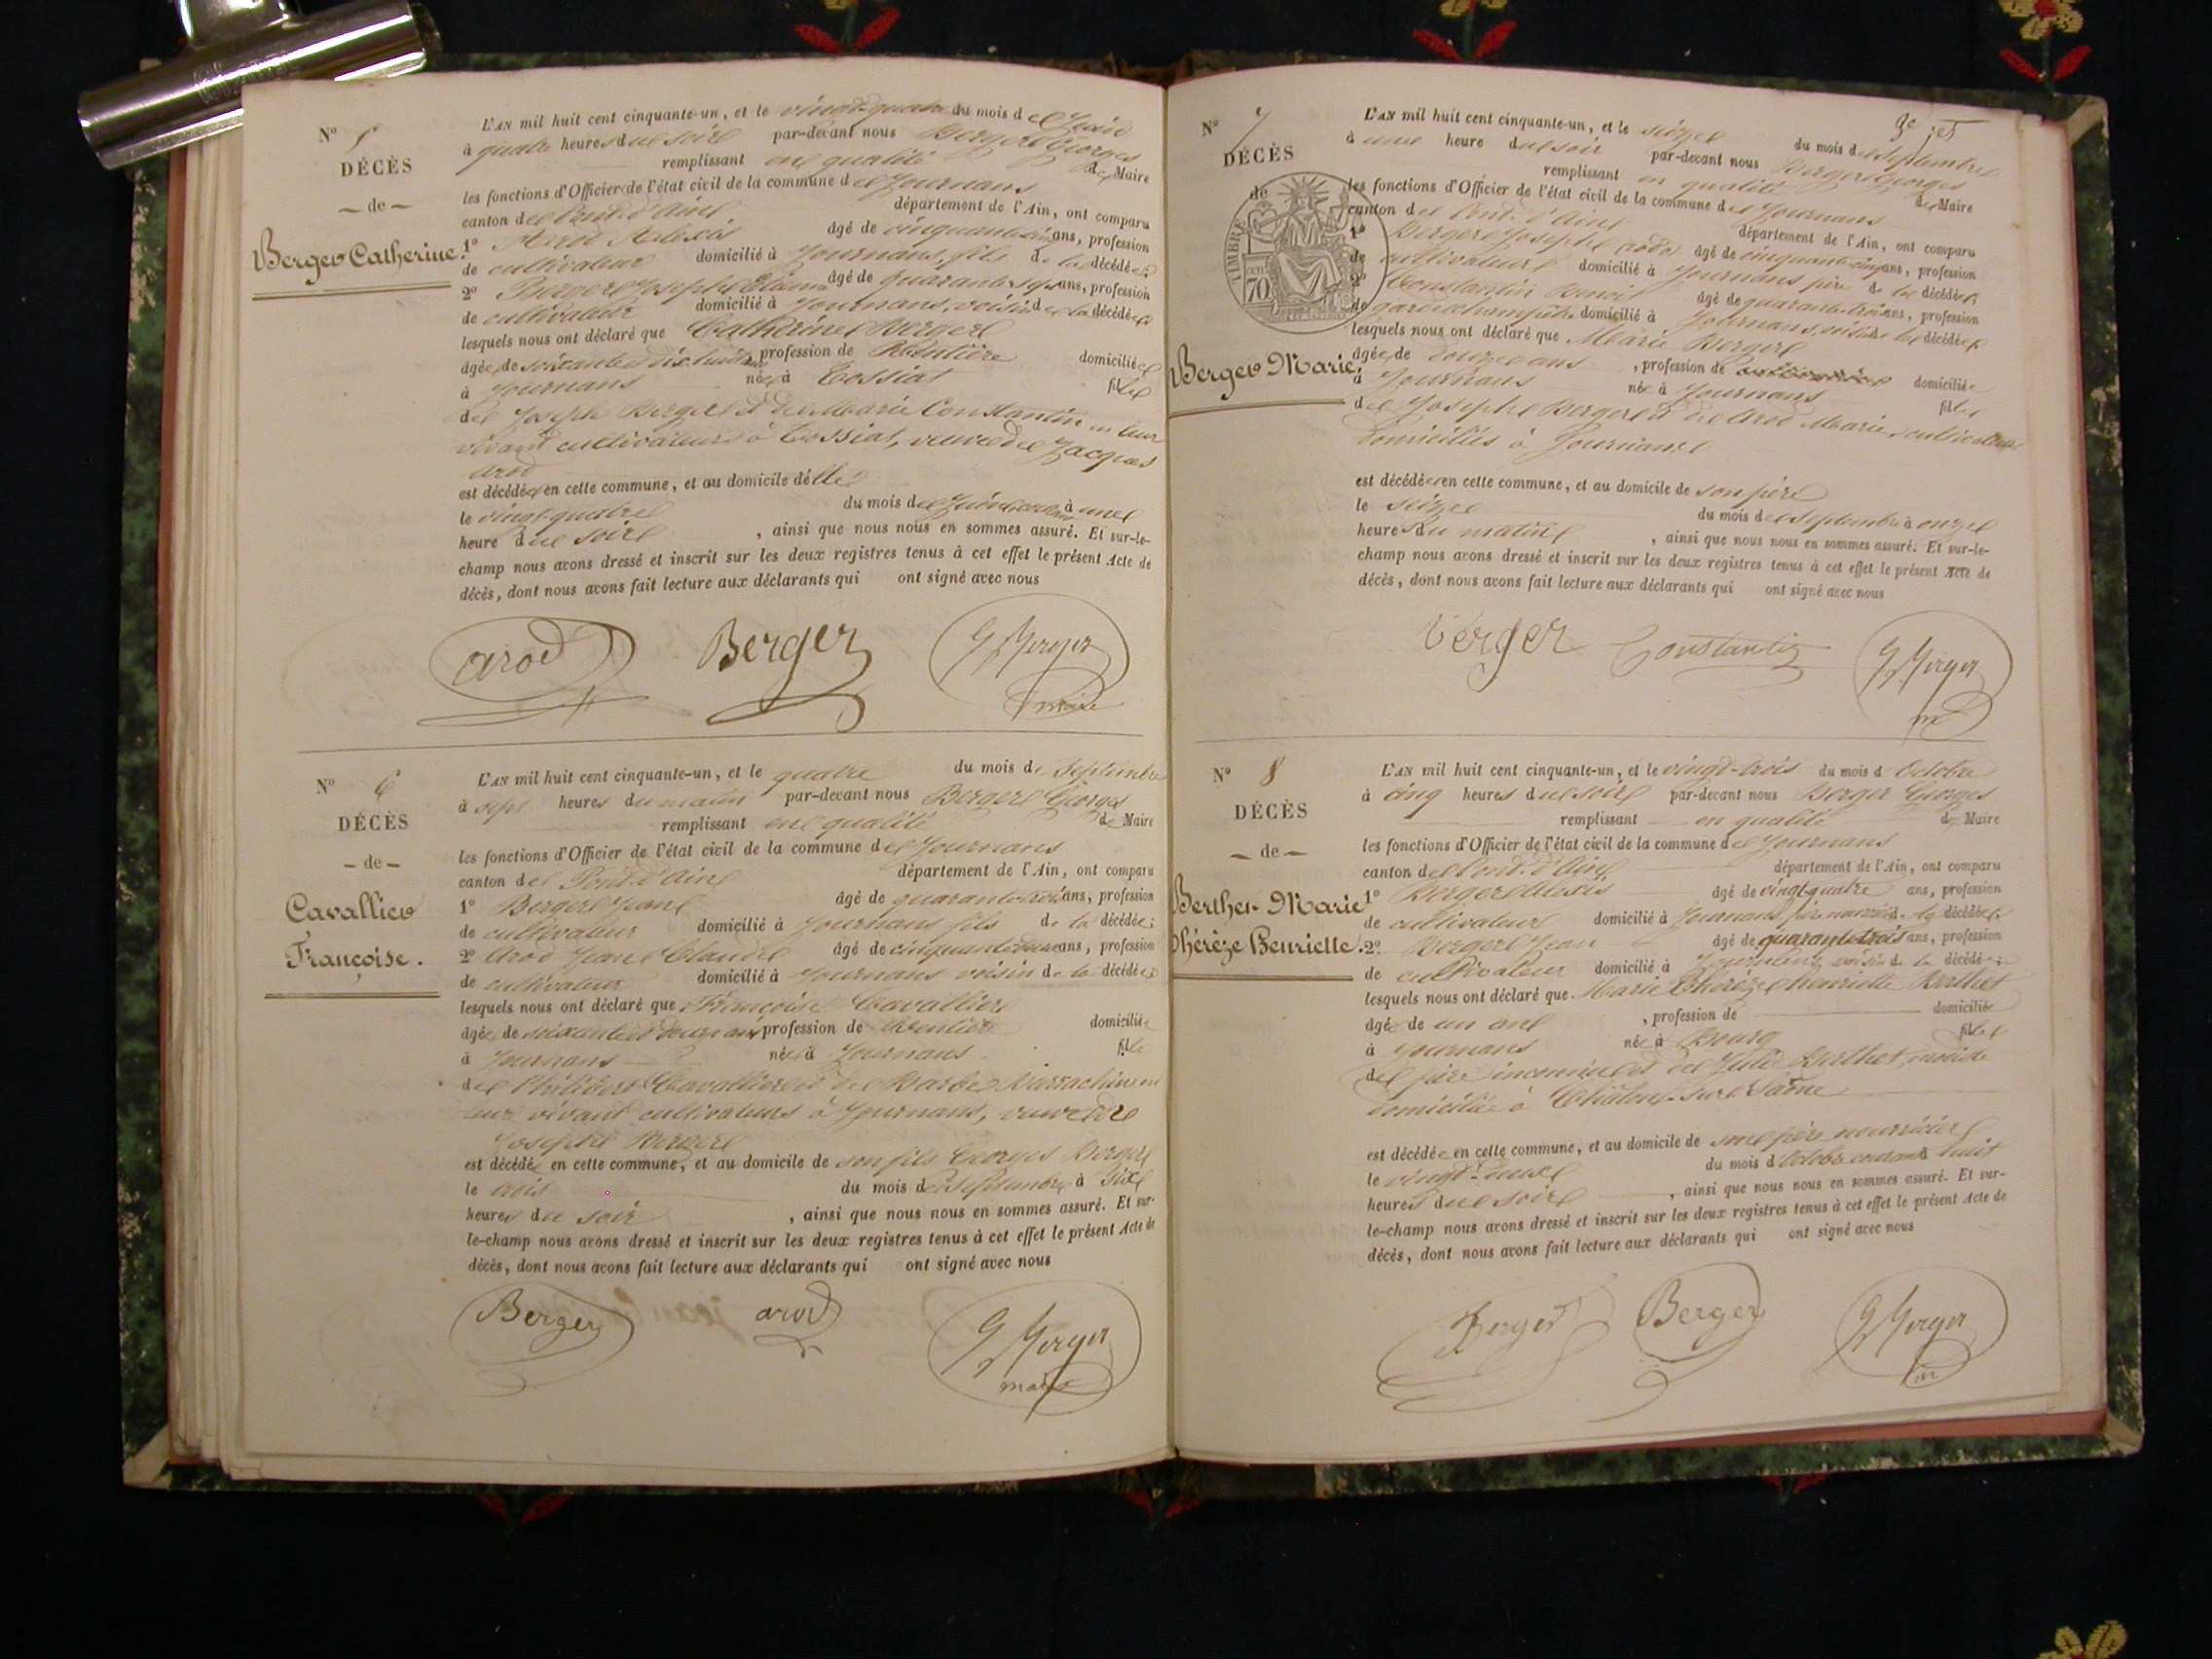 N° 5
DÉCÈS
— de —
Berger Catherine.
L'AN mil huit cent cinquante-un, et le vingt-quatre du mois de Juin
à quatre heures du soir par-devant nous Berger Georges
remplissant en qualité de Maire
les fonctions d'Officier de l'état civil de la commune de Journans
canton de Pont-d'Ain département de l'Ain, ont comparu
1° Arod Alexis âgé de cinquante ans, profession
de cultivateur domicilié à Journans, fils de la décédée;
2° Berger Joseph âgé de quarante sept ans, profession
de cultivateur domicilié à Journans, voisin de la décédée;
lesquels nous ont déclaré que Catherine Berger
âgée de soixante dix huit ans profession de Rentière domiciliée
à Journans née à Tossiat fille
de Joseph Berger et de Marie Constantin en leur
vivant cultivateurs à Tossiat, veuve de Jacques
Arod
est décédée en cette commune, et au domicile d'elle
le vingt-quatre du mois de Juin courant à une
heure du soir , ainsi que nous nous en sommes assuré. Et sur-le-
champ nous avons dressé et inscrit sur les deux registres tenus à cet effet le présent Acte de
décès, dont nous avons fait lecture aux déclarants qui ont signé avec nous
arod Berger G Berger
maire
N° 6
DÉCÈS
— de —
Cavallier
Françoise.
L'AN mil huit cent cinquante-un, et le quatre du mois de Septembre
à sept heures du matin par-devant nous Berger Georges
remplissant en qualité de Maire
les fonctions d'Officier de l'état civil de la commune de Journans
canton de Pont-d'Ain département de l'Ain, ont comparu
1° Berger Jean âgé de quarante-trois ans, profession
de cultivateur domicilié à Journans fils de la décédée;
2° Arod Jean Claude âgé de cinquante deux ans, profession
de cultivateur domicilié à Journans voisin de la décédée;
lesquels nous ont déclaré que Françoise Cavallier
âgée de soixante et douze ans profession de Rentière domiciliée
à Journans née à Journans fille
de Philibert Cavallier et de Barbe Marrachin en
leur vivant cultivateurs à Journans, veuve de
Joseph Berger
est décédée en cette commune, et au domicile de son fils Georges Berger
le trois du mois de Septembre à six
heures du soir , ainsi que nous nous en sommes assuré. Et sur-
le-champ nous avons dressé et inscrit sur les deux registres tenus à cet effet le présent Acte de
décès, dont nous avons fait lecture aux déclarants qui ont signé avec nous
Berger arod G Berger
maire
N° 7
DÉCÈS
de
TIMBRE
70
Berger Marie.
L'AN mil huit cent cinquante-un, et le seize du mois de Septembre
à une heure du soir par-devant nous Berger Georges
remplissant en qualité de Maire
les fonctions d'Officier de l'état civil de la commune de Journans
canton de Pont-d'Ain département de l'Ain, ont comparu
1° Berger Joseph âgé de cinquante cinq ans, profession
de cultivateur domicilié à Journans père de la décédée;
2° Constantin Benoit âgé de quarante-trois ans, profession
de garde champêtre domicilié à Journans, voisin de la décédée;
lesquels nous ont déclaré que Marie Berger
âgée de douze ans , profession de domiciliée
à Journans née à Journans fille
de Joseph Berger et de Arod Marie, cultivateurs
domiciliés à Journans
est décédée en cette commune, et au domicile de son père
le seize du mois de Septembre à onze
heures du matin , ainsi que nous nous en sommes assuré. Et sur-le-
champ nous avons dressé et inscrit sur les deux registres tenus à cet effet le présent Acte de
décès, dont nous avons fait lecture aux déclarants qui ont signé avec nous
berger Constantin G Berger
m
N° 8
DÉCÈS
— de —
Berthet Marie
Thérèze Henriette.
L'AN mil huit cent cinquante-un, et le vingt-trois du mois d Octobre
à cinq heures du soir par-devant nous Berger Georges
remplissant en qualité de Maire
les fonctions d'Officier de l'état civil de la commune de Journans
canton de Pont-d'Ain département de l'Ain, ont comparu
1° Berger Alexis âgé de vingt-quatre ans, profession
de cultivateur domicilié à Journans, père nourricier de la décédée;
2° Berger Jean âgé de quarante-trois ans, profession
de cultivateur domicilié à Journans voisin de la décédée;
lesquels nous ont déclaré que Marie Thérèze henriette Berthet
âgée de un an , profession de domiciliée
à Journans née à Bourg fille
de père inconnu et de Julie Berthet, modiste
domiciliée à Châlon-sur-Saône
est décédée en cette commune, et au domicile de son père nourricier
le vingt-deux du mois d'Octobre courant à huit
heures du soir , ainsi que nous nous en sommes assuré. Et sur-
le-champ nous avons dressé et inscrit sur les deux registres tenus à cet effet le présent Acte de
décès, dont nous avons fait lecture aux déclarants qui ont signé avec nous
Berger Berger G Berger
m